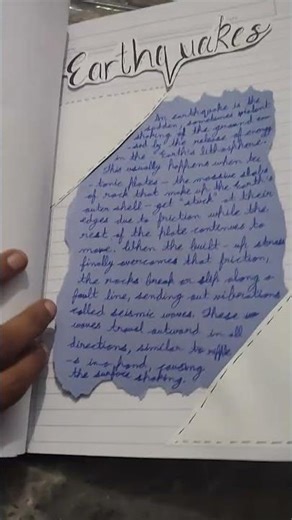 Earthquakes
An earthquake is the
sudden, sometimes violent
shaking of the ground cau
-sed by the release of energy
in the "Earth's lithosphere.
This usually happens when tec
-tonic plates - the massive slabs
of rock that make up the earth's
outer shell - get "stuck" at their
edges due to friction while the
rest of the plate continues to
move. When the built-up stress
finally overcomes that friction,
the rocks break or slip along a
fault line, sending out vibrations
called seismic waves. These
waves travel outward in all
directions, similar to ripple
-s in a pond, causing
the surface shaking.